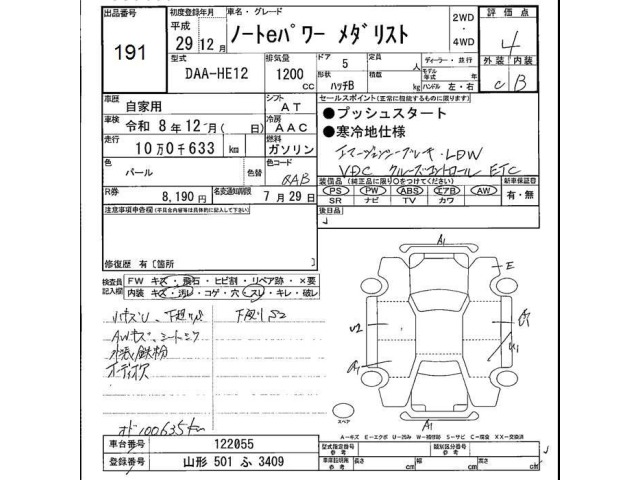 出品番号 初度登録年月 車名・グレード 2WD・4WD 評価点
191 平成 29年12月 ノートeパワー メダリスト 4
型式 排気量 ドア 5 定員 人 ディーラー・並行 外装 内装
DAA-HE12 1200cc 形状 ハッチB 積載 kg モデル年式 年 ハンドル 左・右 C B
車歴 自家用 シフト AT セールスポイント(正常に機能するものに限ります)
車検 令和 8年12月( 日) 冷房 AAC ●プッシュスタート
走行 10万0千633 km 燃料 ガソリン ●寒冷地仕様
エマージェンシーブレーキ・LDW
VDC クルーズコントロール ETC
色 パール 色替 色コード QAB
装備品(純正品に限り○をつけてください) 新車保証書
PS PW ABS エアB AW 有・無
SR ナビ TV カワ
R券 8,190円 名変通知期限 7月29日
注意事項申告欄(不具合内容等は具体的に記入して下さい) 後日品
修復歴 有〔箇所
検査員記入欄 FW キズ・飛石・ヒビ割・リペア跡・×要
内装 キズ・汚レ・コゲ・穴・スレ・キレ・破レ
AWキズ、シート
鉄粉
オド100635km
A1 E
U2
A1
スペア
A1
A-キズ E-エクボ U-凹み W-補修跡 S-サビ C-腐食 XX-交換済
車台番号 122055 型式指定番号 参考 類別区分番号 参考
登録番号 山形 501 ふ 3409 車両証明用 参考 長さ cm 幅 cm 高さ cm